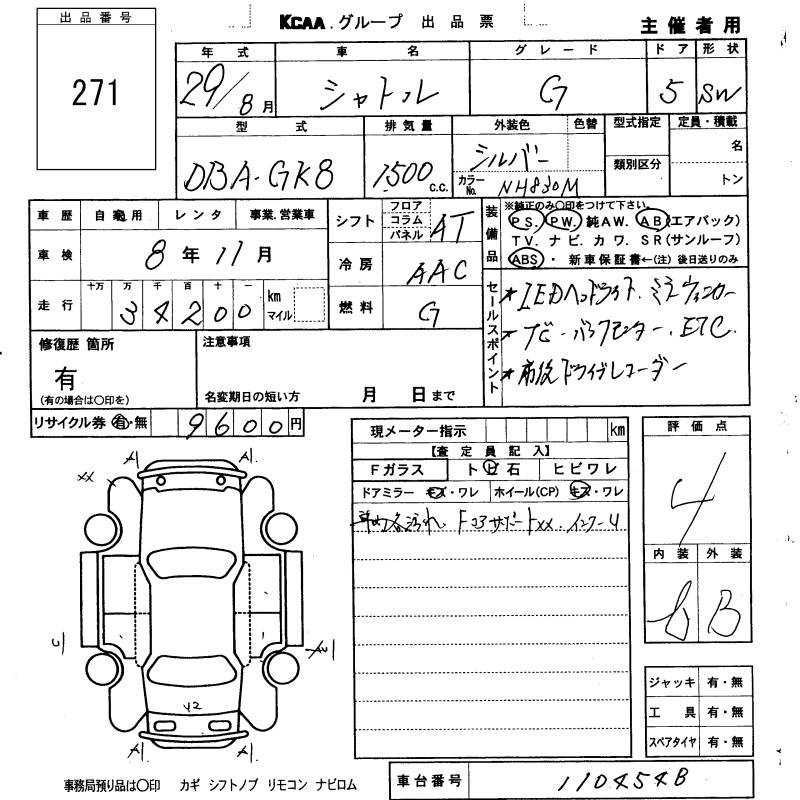 出品番号
271
KCAA.グループ 出品票
主催者用
年式 車名 グレード ドア 形状
29/8月 シャトル G 5 SW
型式 排気量 外装色 色替 型式指定 定員・積載
DBA-GK8 1500 c.c. シルバー カラーNo. NH830M 類別区分 名 トン
車歴 自家用 レンタ 事業.営業車
車検 8年11月
走行 十万 万 千 百 十 一
34200 km マイル
シフト フロア コラム パネル AT
冷房 AAC
燃料 G
装備品 ※純正のみ〇印をつけて下さい。
PS. PW. 純AW. AB(エアバック)
TV. ナビ. カワ. SR(サンルーフ)
ABS・ 新車保証書←(注) 後日送りのみ
セールスポイント
★LEDヘッドライト.ミラーウィンカー
★ナビ.バックモニター.ETC.
★前後ドライブレコーダー
修復歴 箇所
有
(有の場合は〇印を)
注意事項
名変期日の短い方 月 日まで
リサイクル券 有・無 9600円
現メーター指示 km
【査定員記入】
Fガラス トビ石 ヒビワレ
ドアミラー キズ・ワレ ホイール(CP) キズ・ワレ
評価点
4
内装 外装
b B
A1 A1.
xx
Y2
ジャッキ 有・無
工具 有・無
スペアタイヤ 有・無
事務局預り品は〇印 カギ シフトノブ リモコン ナビロム
車台番号 1104548